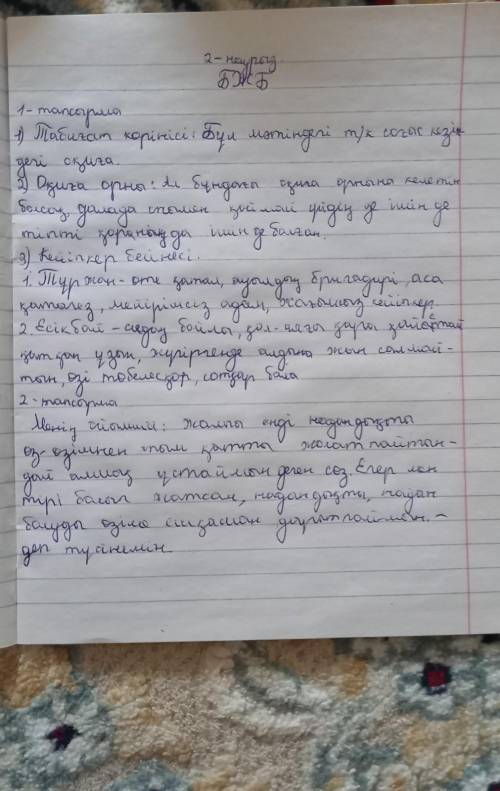 2-наурыз
БЖБ
1-тапсырма
1) Табиғат көрінісі: Бұл мәтіндегі т/к соғыс кезін
дегі оқиға.
2) Оқиға орны: Ал бұндағы оқиға орнына келетін
болсақ, далада сонымен үйдің де ішін де
тіпті қораның да ішінде болған.
3) Кейіпкер бейнесі.
1. Тұржан - өте қатал, ауылдың бригадирі, аса
қатыгез, мейірімсіз адам, жағымсыз кейіпкер.
2. Есікбай - сидаң бойлы, қол-аяғы әлі қатпай
ұзын, жүгіргенде алдына жан салмай-
тын, өзі төбелесқор, сотқар бала
2-тапсырма
Менің ойымша: жалпы енді надандықты
өз-өзімнен тым қатты жолатпайтын-
дай алшақ ұстаймын деген сөз. Егер мен
тірі болып жатсам, надандықты, надан
болуды өзіме ешқашан дарытпаймын. -
деп түсінемін.